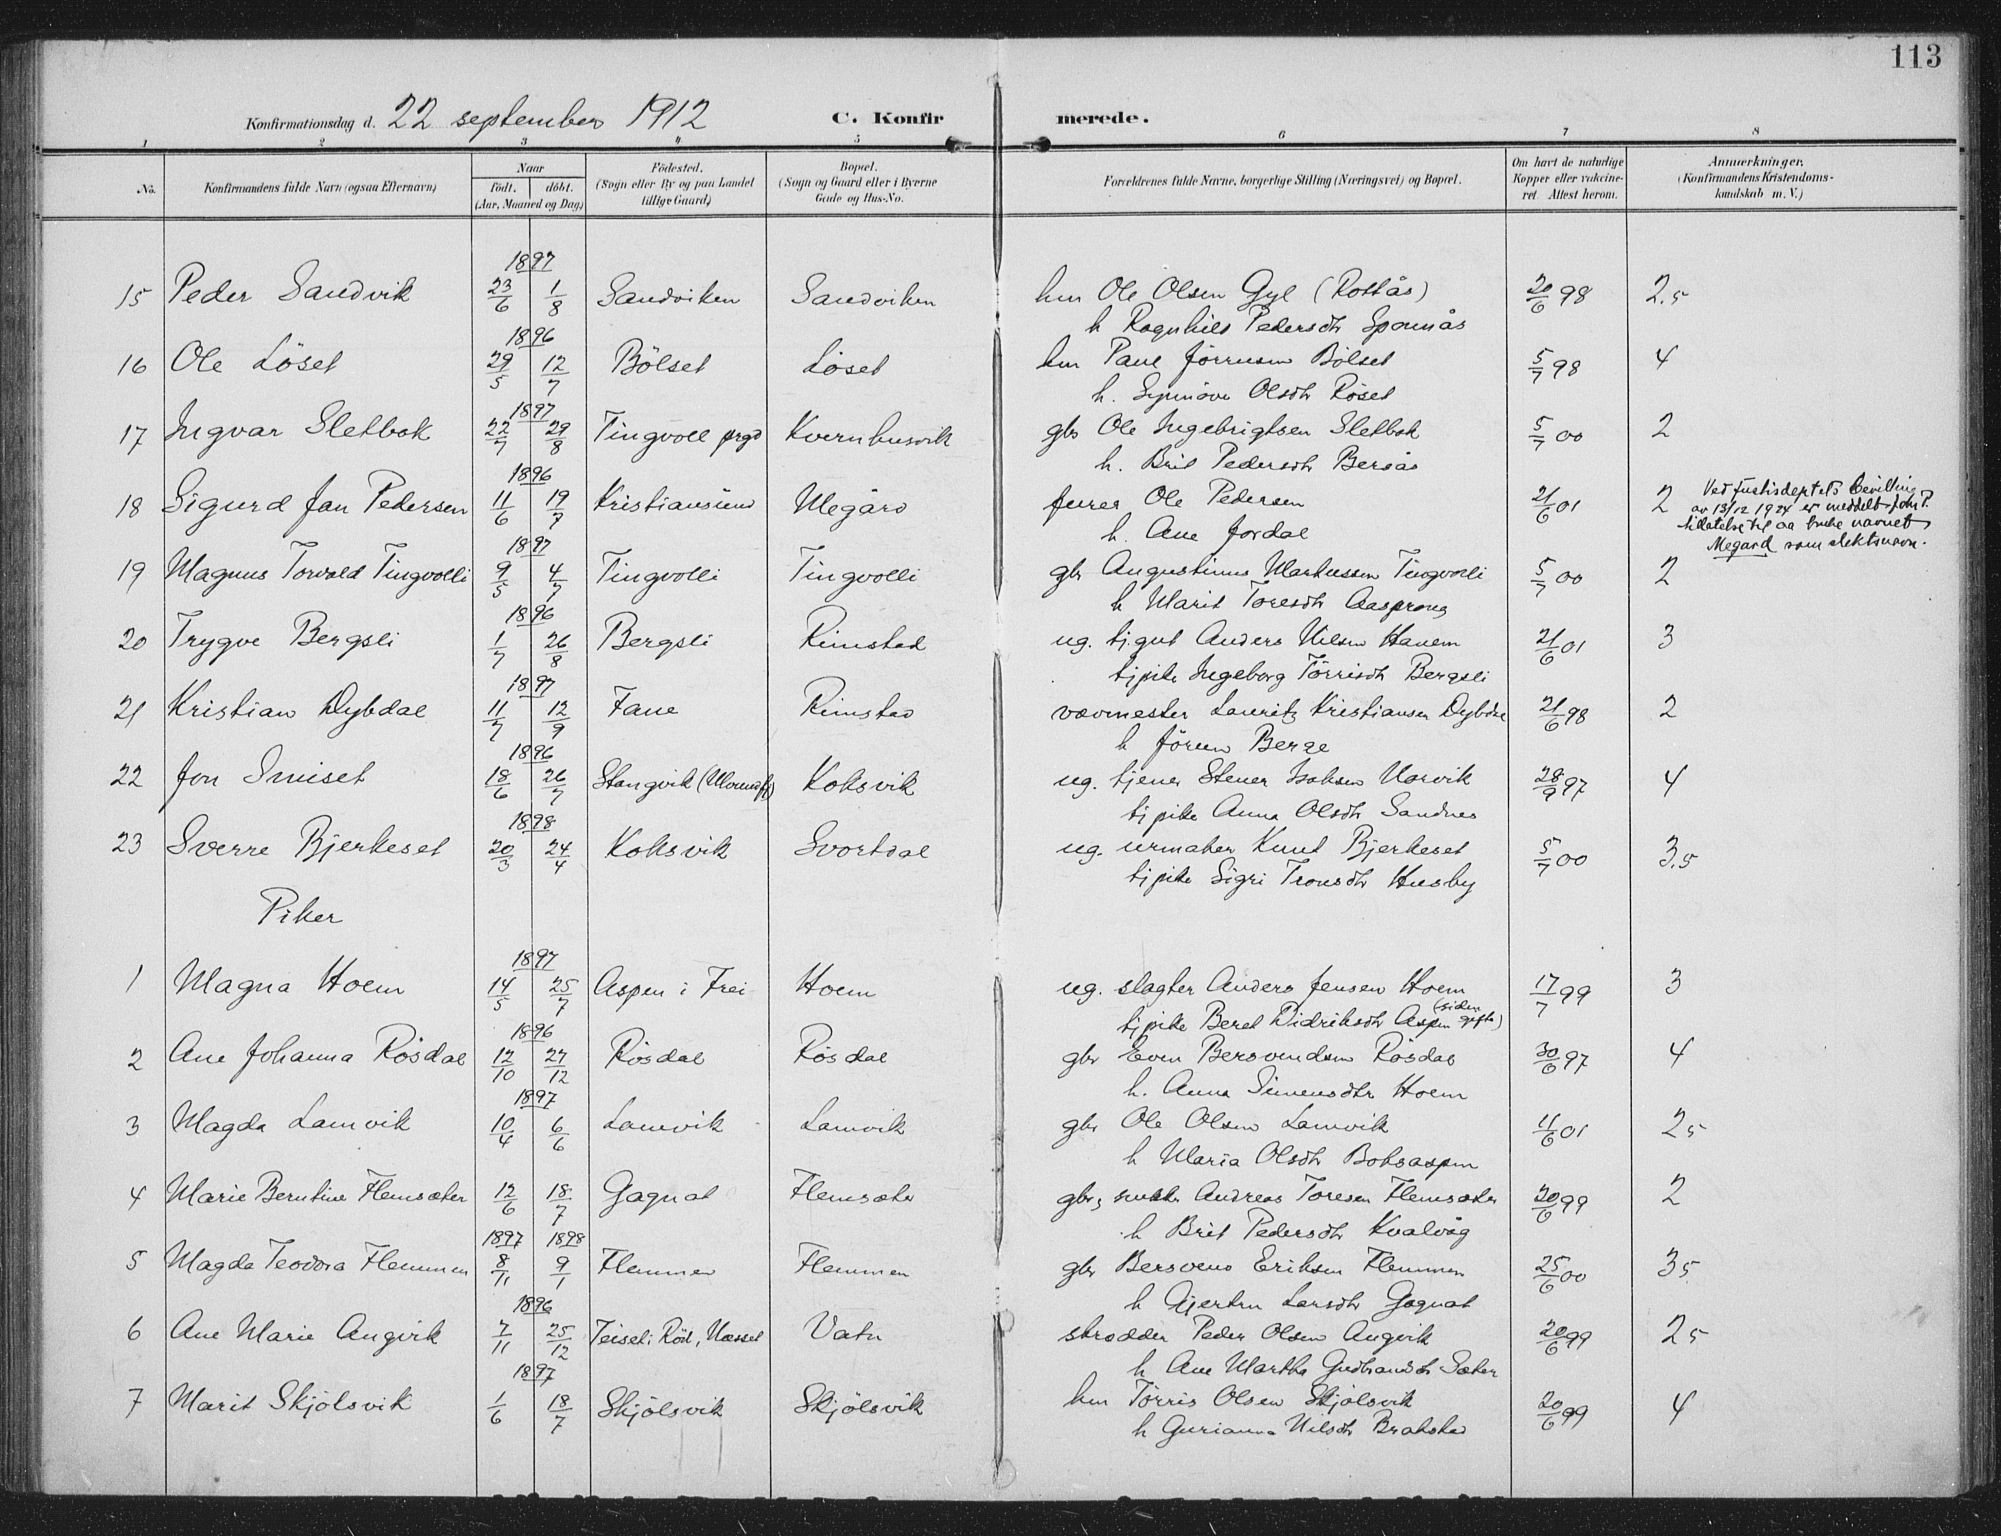 113
Konfirmationsdag d. 22 september 1912 C. Konfirmerede.
1 2 3 4 5 6 7 8
No. Konfirmandens fulde Navn (ogsaa Efternavn) Naar födt. döbt. (Aar, Maaned og Dag) Födested. (Sogn eller By og paa Landet tillige Gaard) Bopæl. (Sogn og Gaard eller i Byerne Gade og Hus-No. Forældrenes fulde Navne, borgerlige Stilling (Næringsvei) og Bopæl. Om havt de naturlige Kopper eller vakcineret. Attest herom. Anmærkninger. (Konfirmandens Kristendomskundskab m. V.)
1897
15 Peder Sandvik 23/6 1/8 Sandviken Sandviken hm Ole Olsen Gyl (Rottås) 20/6 98 2.5
h Ragnhild Pedersdtr Sponnås
1896
16 Ole Löset 29/5 12/7 Bölset Löset hm Paul Jörnsen Bölset 5/7 98 4
h. Synnöve Olsdtr Röset
1897
17 Ingvar Sletbak 22/7 29/8 Tingvoll prgd Kvernhusvik gbr Ole Ingebrigtsen Sletbak 5/7 00 2
h. Brit Pedersdtr Bersås
1896
18 Sigurd Jan Pedersen 11/6 19/7 Kristiansund Megård furer Ole Pedersen 21/6 01 2
h. Ane Jordal
Ved Justisdeptets bevilling
av 13/12 1924 er meddelt
tillatelse til aa bruke navnet
Megard som slektsnavn.
1897
19 Magnus Torvald Tingvolli 9/5 4/7 Tingvolli Tingvolli gbr Augustinus Markussen Tingvolli 5/7 00 2
h Marit Toresdtr Aasprong
1896
20 Trygve Bergsli 1/7 26/8 Bergsli Rimstad ug. tj.gut Anders Nilsen Hanem 21/6 01 3
tjpike Ingeborg Törrisdtr Bergsli
1897
21 Kristian Dybdal 11/7 12/9 Fane Rimstad vævmester Lauritz Kristiansen Dybdal 21/6 98 2
h Jörun Berge
1896
22 Jon Smiset 18/6 26/7 Stangvik Koksvik ug. tjener Stener Isaksen Narvik 28/9 97 4
tjpike Anna Olsdtr Sandnes
1898
23 Sverre Bjerkeset 20/3 24/4 Koksvik Svortdal ug. urmaker Knut Bjerkeset 5/7 00 3.5
tjpike Sigri Tronsdtr Husby
Piker
1897
1 Magna Hoem 14/5 25/7 Aspen i Frei Hoem ug. slagter Anders Jensen Hoem 17/7 99 3
tjpike Beret Didriksdtr Aspen (siden gifte)
1896
2 Ane Johanna Rösdal 12/10 27/12 Rösdal Rösdal gbr Even Bersvendsen Rösdal 30/6 97 4
h. Anna Simensdtr Hoem
1897
3 Magda Lamvik 10/4 6/6 Lamvik Lamvik gbr Ole Olsen Lamvik 11/6 01 2 5
h Maria Olsdtr Boksaspen
4 Marie Berntine Flemsæter 12/6 18/7 Gagnat Flemsæter gbr, Andreas Toresen Flemsæter 20/6 99 2
h Brit Pedersdtr Kvalvåg
1897 1898
5 Magda Teodora Flemmen 8/11 9/1 Flemmen Flemmen gbr Bersvend Eriksen Flemmen 25/6 00 3 5
h Gjertru Larsdtr Gagnat
1896
6 Ane Marie Angvik 7/11 25/12 Teiset i Röd, Næsset Vatn skrædder Peder Olsen Angvik 20/6 99 2 5
h Ane Martha Gudbrandsdtr Sæter
1897
7 Marit Skjölsvik 1/6 18/7 Skjölsvik Skjölsvik hm Törris Olsen Skjölsvik 20/6 99 4
h Gurianna Nilsdtr Brakstad